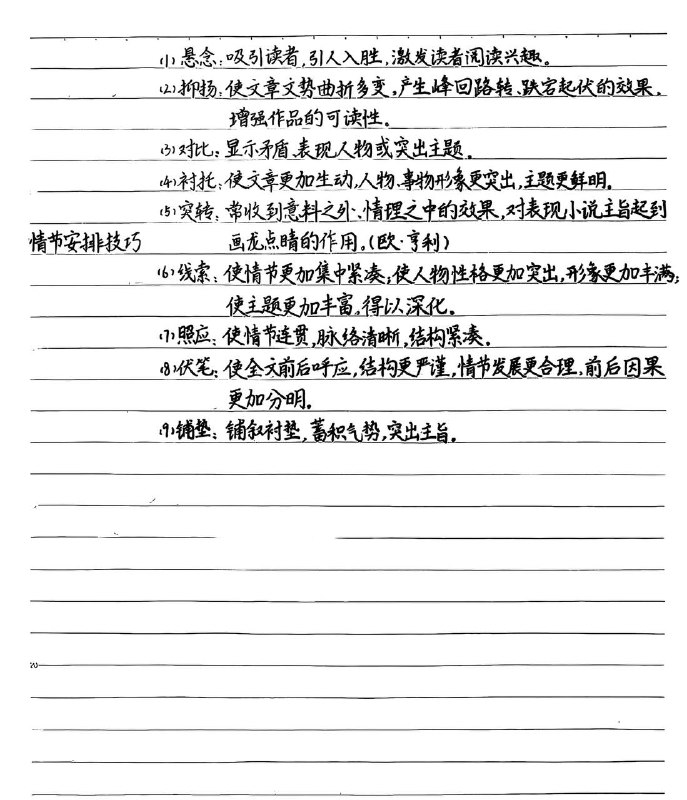 (1)悬念:吸引读者,引人入胜,激发读者阅读兴趣。
(2)抑扬:使文章文势曲折多变,产生峰回路转、跌宕起伏的效果,
增强作品的可读性。
(3)对比:显示矛盾,表现人物或突出主题。
(4)衬托:使文章更加生动,人物、事物形象更突出,主题更鲜明。
(5)突转:常收到意料之外、情理之中的效果,对表现小说主旨起到
情节安排技巧 画龙点睛的作用。(欧·亨利)
(6)线索:使情节更加集中紧凑;使人物性格更加突出,形象更加丰满;
使主题更加丰富,得以深化。
(7)照应:使情节连贯,脉络清晰,结构紧凑。
(8)伏笔:使全文前后呼应,结构更严谨,情节发展更合理,前后因果
更加分明。
(9)铺垫:铺叙衬垫,蓄积气势,突出主旨。